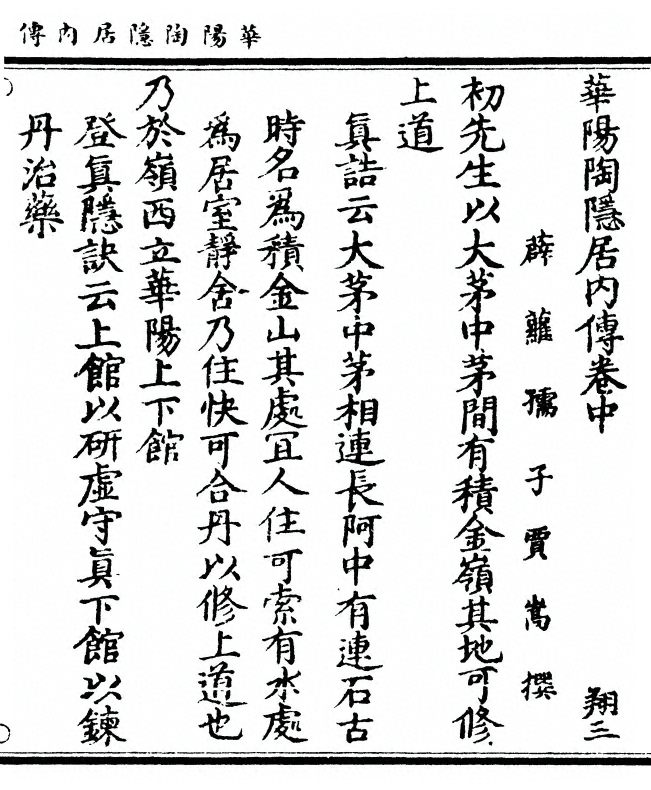 華陽陶隱居内傳
華陽陶隱居内傳卷中 翔三
薜蘿孺子賈嵩撰
初先生以大茅中茅間有積金嶺其地可修
上道
眞誥云大茅中茅相連長阿中有連石古
時名爲積金山其處冝人住可索有水處
爲居室靜舍乃住快可合丹以修上道也
乃於嶺西立華陽上下館
登眞隱訣云上館以研虛守眞下館以鍊
丹治藥